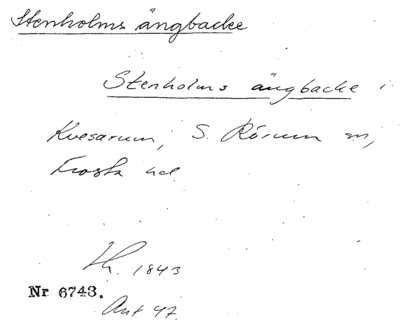 Stenholms ängbacke
Stenholms ängbacke i
Kvesarum, S. Rörum sn,
Frosta hd
Lh. 1843
Nr 6743.
Ant 47.